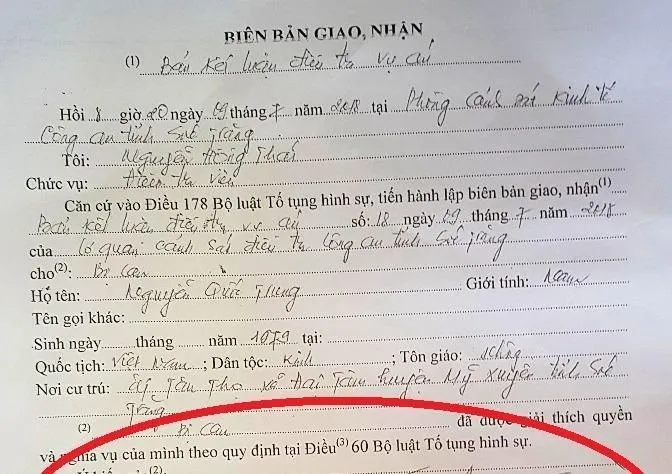 BIÊN BẢN GIAO, NHẬN
(1) Bản kết luận điều tra vụ án
Hồi 8 giờ 20 ngày 19 tháng 7 năm 2018 tại Phòng Cảnh sát Kinh tế
Công an tỉnh Sóc Trăng
Tôi: Nguyễn Hồng Thái
Chức vụ: Điều tra viên
Căn cứ vào Điều 178 Bộ luật Tố tụng hình sự, tiến hành lập biên bản giao, nhận(1)
Bản kết luận điều tra vụ án số: 18 ngày 19 tháng 7 năm 2018
của Cơ quan cảnh sát điều tra Công an tỉnh Sóc Trăng
cho(2): Bị can
Họ tên: Nguyễn Quốc Trung Giới tính: Nam
Tên gọi khác:
Sinh ngày tháng năm 1979 tại:
Quốc tịch: Việt Nam; Dân tộc: Kinh; Tôn giáo: không
Nơi cư trú: ấp Tâm Thọ xã Đại Tâm huyện Mỹ Xuyên tỉnh Sóc
Trăng
(2) Bị can đã được giải thích quyền
và nghĩa vụ của mình theo quy định tại Điều(3) 60 Bộ luật Tố tụng hình sự.